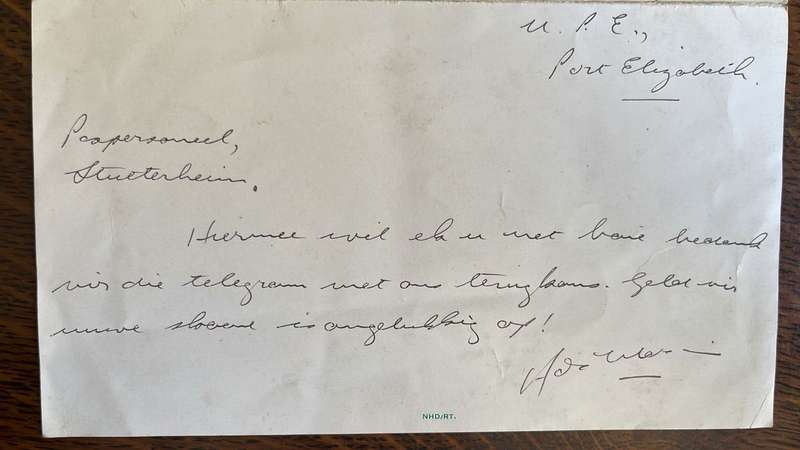 U. P. E.,
Port Elizabeth.
Pospersoneel,
Stutterheim.
Hiermee wil ek u net baie bedank
vir die telegram met ons terugkoms. Geld vir
nuwe is ongelukkig op!
NHD/RT.